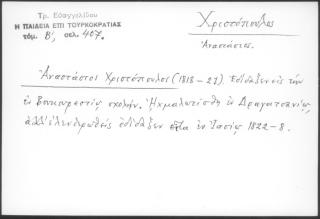 Τρ. Εὐαγγελίδου
Η ΠΑΙΔΕΙΑ ΕΠΙ ΤΟΥΡΚΟΚΡΑΤΙΑΣ
τόμ. Β', σελ. 407.
Χριστόπουλος
Ἀναστάσιος.
Ἀναστάσιος Χριστόπουλος (1818-21). Ἐδίδαξεν εἰς τὴν
ἐν Βουκουρεστίῳ σχολήν. Ἠχμαλωτίσθη ἐν Δραγατσανίῳ,
ἀλλ' ἐλευθερωθεὶς ἐδίδαξεν εἶτα ἐν Ἰασίῳ 1822-8.